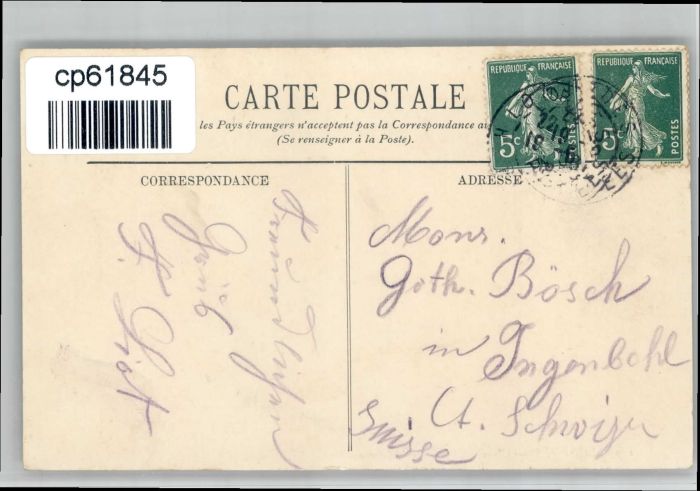 cp61845
CARTE POSTALE
les Pays étrangers n'acceptent pas la Correspondance au
(Se renseigner à la Poste).
CORRESPONDANCE
ADRESSE
REPUBLIQUE FRANÇAISE
5c
POSTES
REPUBLIQUE FRANÇAISE
5c
POSTES
Mons.
Goth. Bösch
in Ingenbohl
Ct. Schwyz
Suisse
Gruß